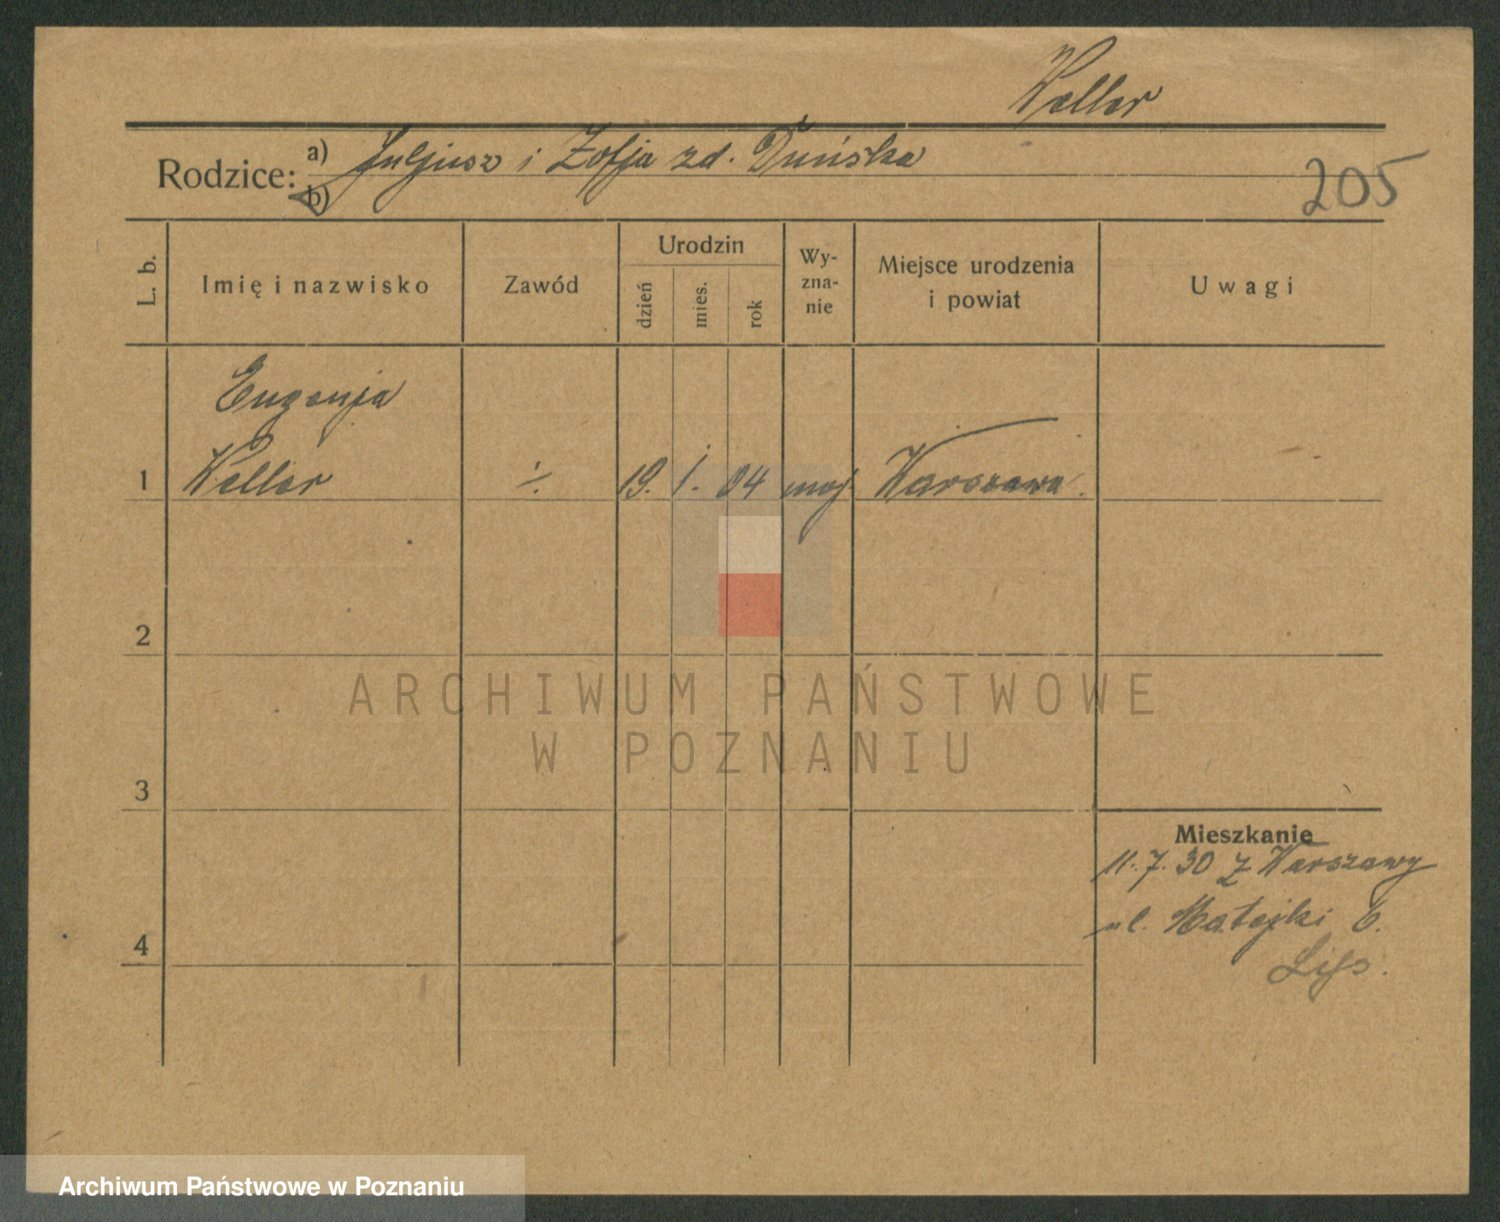 Weller
Rodzice: a) Juljusz i Zofja zd. Duńska
b)
205
L. b.
Imię i nazwisko
Zawód
Urodzin
dzień
mies.
rok
Wy-
zna-
nie
Miejsce urodzenia
i powiat
Uwagi
Eugenja
1 Weller ·/. 19. 1. 04 moj. Warszawa.
2
3
4
Mieszkanie
11.7.30 z Warszawy
ul. Matejki 6.
ARCHIWUM PAŃSTWOWE
W POZNANIU
Archiwum Państwowe w Poznaniu